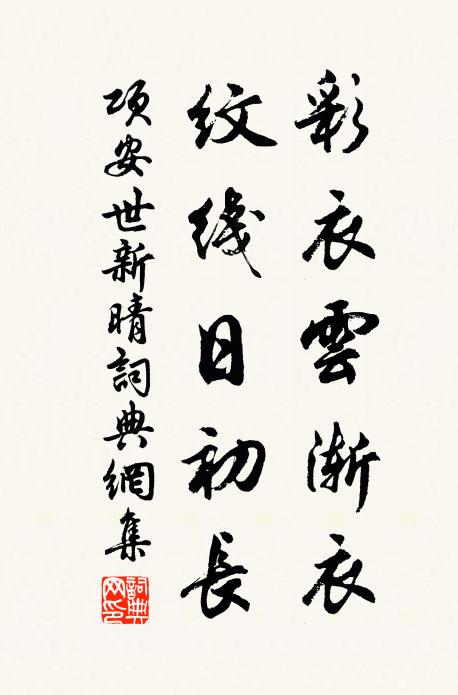 彩衣雲漸衣
紋线日初長
項安世新晴詞典網集
詞典網印